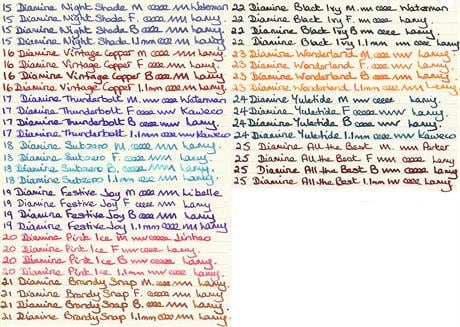 15 Diamine Night Shade M Waterman
15 Diamine Night Shade F. Lamy.
15 Diamine Night Shade B Lamy
15 Diamine Night Shade 1.1mm Lamy.
16 Diamine Vintage Copper M Lamy
16 Diamine Vintage Copper F Lamy.
16 Diamine Vintage Copper B Lamy
16 Diamine Vintage Copper 1.1mm Lamy.
17 Diamine Thunderbolt M Waterman
17 Diamine Thunderbolt F Kaweco
17 Diamine Thunderbolt B Lamy
17 Diamine Thunderbolt 1.1mm Kaweco
18 Diamine Subzero M. Lamy.
18 Diamine Subzero F. Lamy
18 Diamine Subzero B. Lamy.
18 Diamine Subzero 1.1mm Lamy.
19 Diamine Festive Joy M Libelle
19 Diamine Festive Joy F Lamy.
19 Diamine Festive Joy B Lamy
19 Diamine Festive Joy 1.1mm Lamy
20 Diamine Pink Ice M Jinhao
20 Diamine Pink Ice F Lamy.
20 Diamine Pink Ice B Lamy
20 Diamine Pink Ice 1.1mm Lamy.
21 Diamine Brandy Snap M. Lamy
21 Diamine Brandy Snap F. Lamy.
21 Diamine Brandy Snap B. Lamy
21 Diamine Brandy Snap 1.1mm Lamy.
22 Diamine Black Ivy M. Waterman
22 Diamine Black Ivy F. Lamy
22 Diamine Black Ivy B Lamy
22 Diamine Black Ivy 1.1mm Lamy
23 Diamine Wonderland M Lamy.
23 Diamine Wonderland F Lamy
23 Diamine Wonderland B Lamy
23 Diamine Wonderland 1.1mm Lamy.
24 Diamine Yuletide M Lamy.
24 Diamine Yuletide F Lamy.
24 Diamine Yuletide B Lamy
24 Diamine Yuletide 1.1mm Kaweco
25 Diamine All the Best M
25 Diamine All the Best F Lamy.
25 Diamine All the Best B Lamy
25 Diamine All the Best 1.1mm Lamy